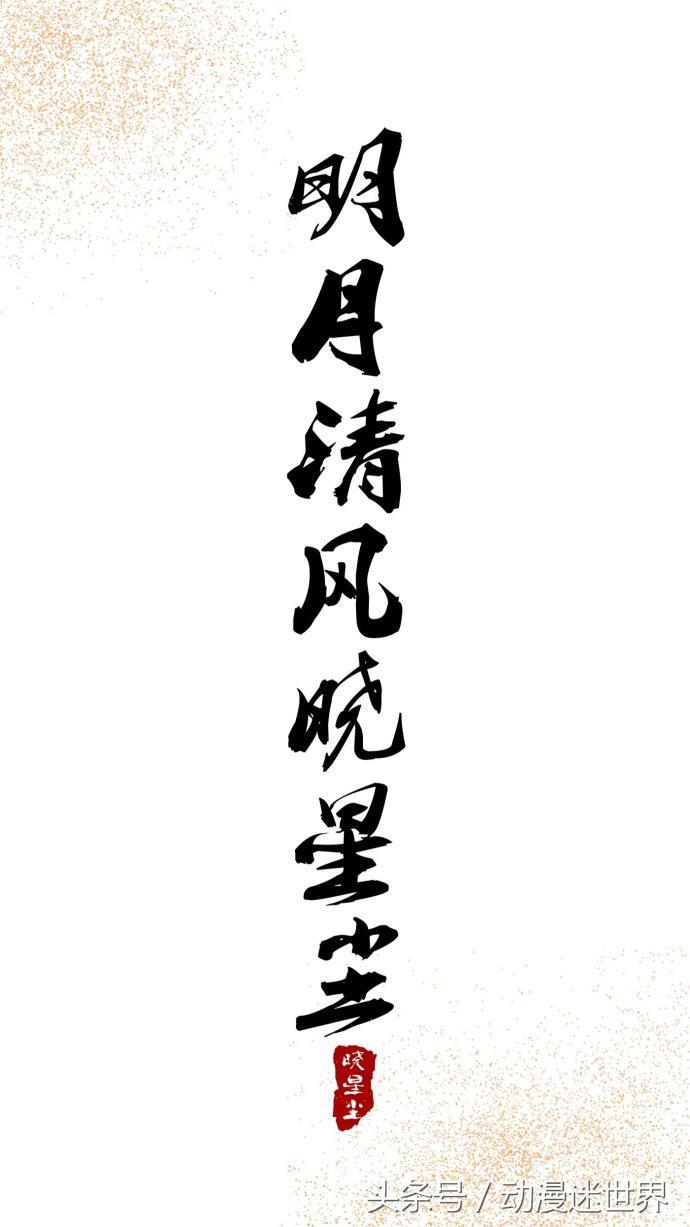 明月清风晓星尘
晓星尘
头条号／动漫迷世界